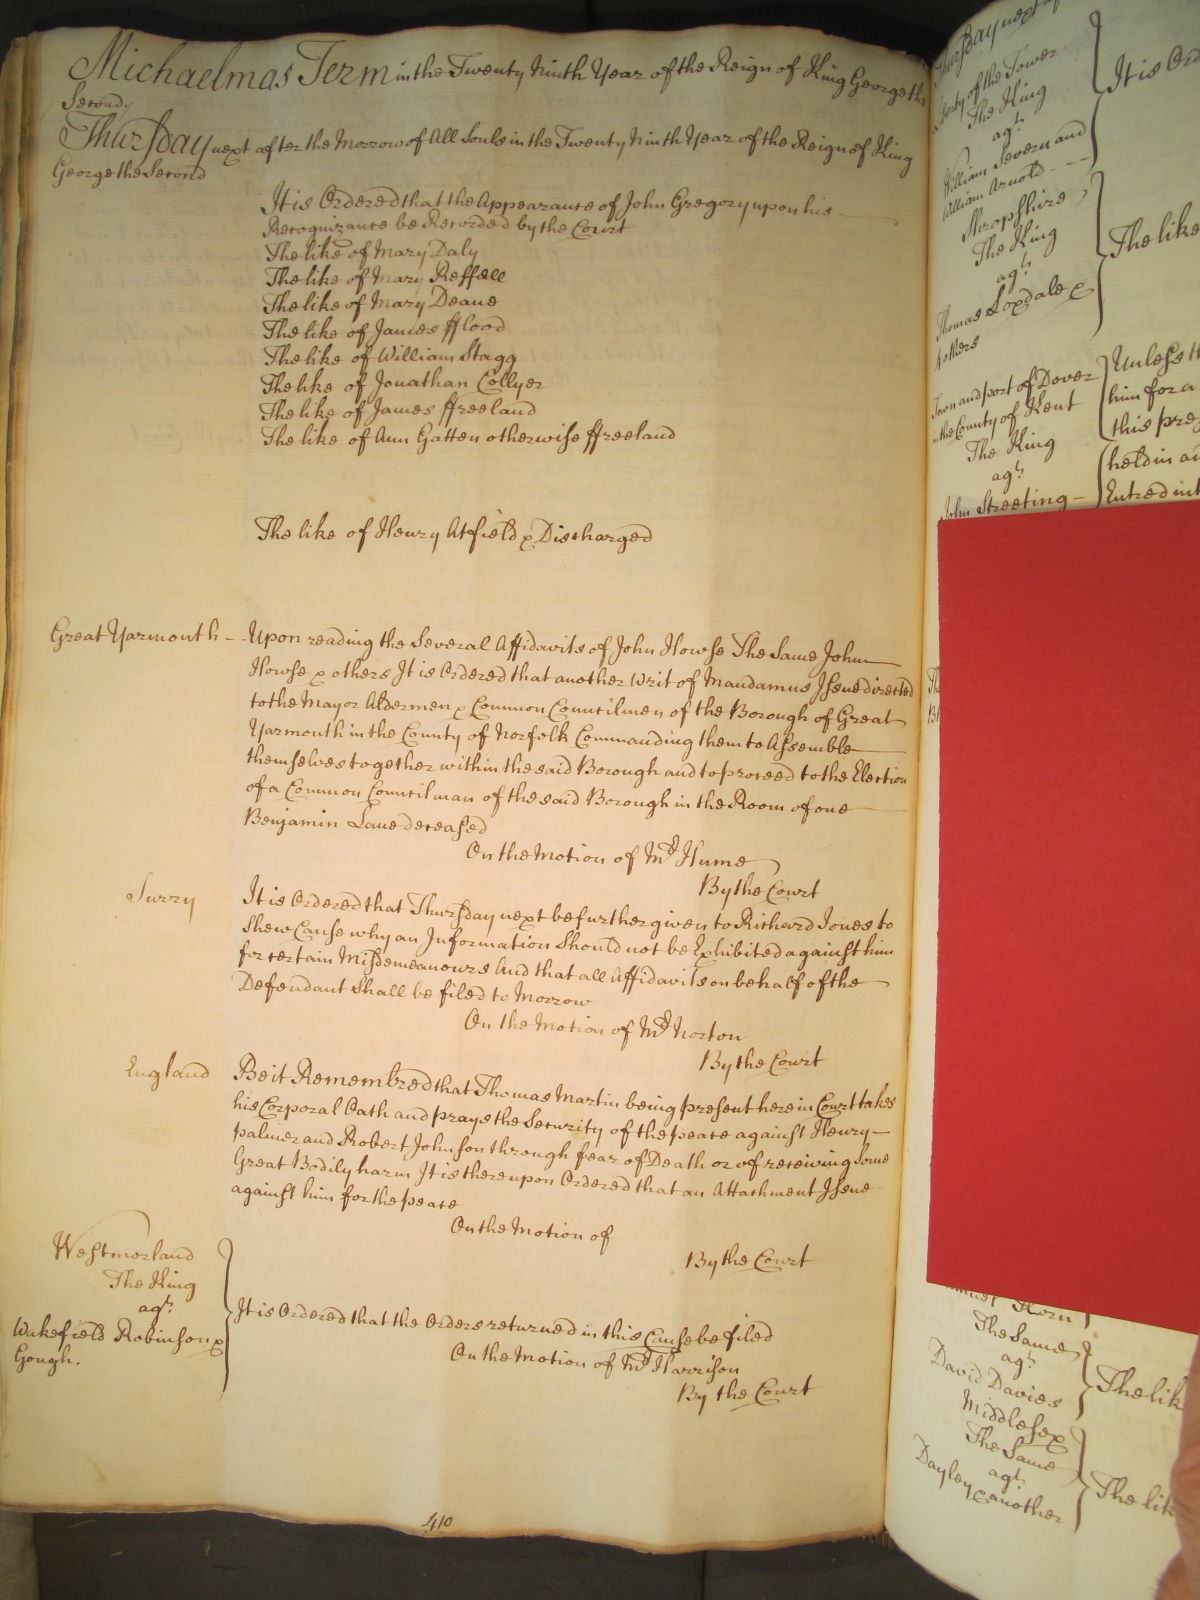 Michaelmas Term in the Twenty Ninth Year of the Reign of King George the
Second.
Thursday next after the Morrow of All Souls in the Twenty Ninth Year of the Reign of King
George the Second
It is Ordered that the Appearance of John Gregory upon his
Recognizance be Recorded by the Court
The like of Mary Daly
The like of Mary Reffell
The like of Mary Deane
The like of James fflood
The like of William Stagg
The like of Jonathan Collyer
The like of James ffreeland
The like of Ann Gatten otherwise ffreeland
The like of Henry Atfield & Discharged
Great Yarmouth - - Upon reading the Several Affidavits of John Howse The Same John
Howse & others It is Ordered that another Writ of Mandamus Issue directed
to the Mayor Aldermen & Common Councilmen of the Borough of Great
Yarmouth in the County of Norfolk Commanding them to Assemble
themselves together within the said Borough and to proceed to the Election
of a Common Councilman of the said Borough in the Room of one
Benjamin Lane deceased
On the Motion of Mr Hume
By the Court
Surry
It is Ordered that Thursday next be further given to Richard Jones to
Shew Cause why an Information Should not be Exhibited against him
for certain Misdemeanours And that all Affidavits on behalf of the
Defendant Shall be filed to Morrow
On the Motion of Mr Norton
By the Court
England
Be it Remembred that Thomas Martin being present here in Court takes
his Corporal Oath and prays the Security of the peace against Henry
palmer and Robert Johnson through fear of Death or of receiving Some
Great Bodily harm It is thereupon Ordered that an Attachment Issue
against him for the peace
On the Motion of
By the Court
Westmorland
The King
agt
Wakefield Robinson &
Gough.
It is Ordered that the Orders returned in this Cause be filed
On the Motion of Mr Harrison
By the Court
410
Thursday next
Liberty of the Tower
The King
agt
William Severn and
William Arnold - - -
It is Ord
Shropshire
The King
agt
Thomas Loxdale &
4 others
The like
Town and port of Dover
in the County of Kent
The King
agt
John Streeting -
Unless
him for a
this pre
held in
Entred int
Horn
The Same
agt
David Davies
The lik
Middlesex
The Same
agt
Dayley & another
The lik